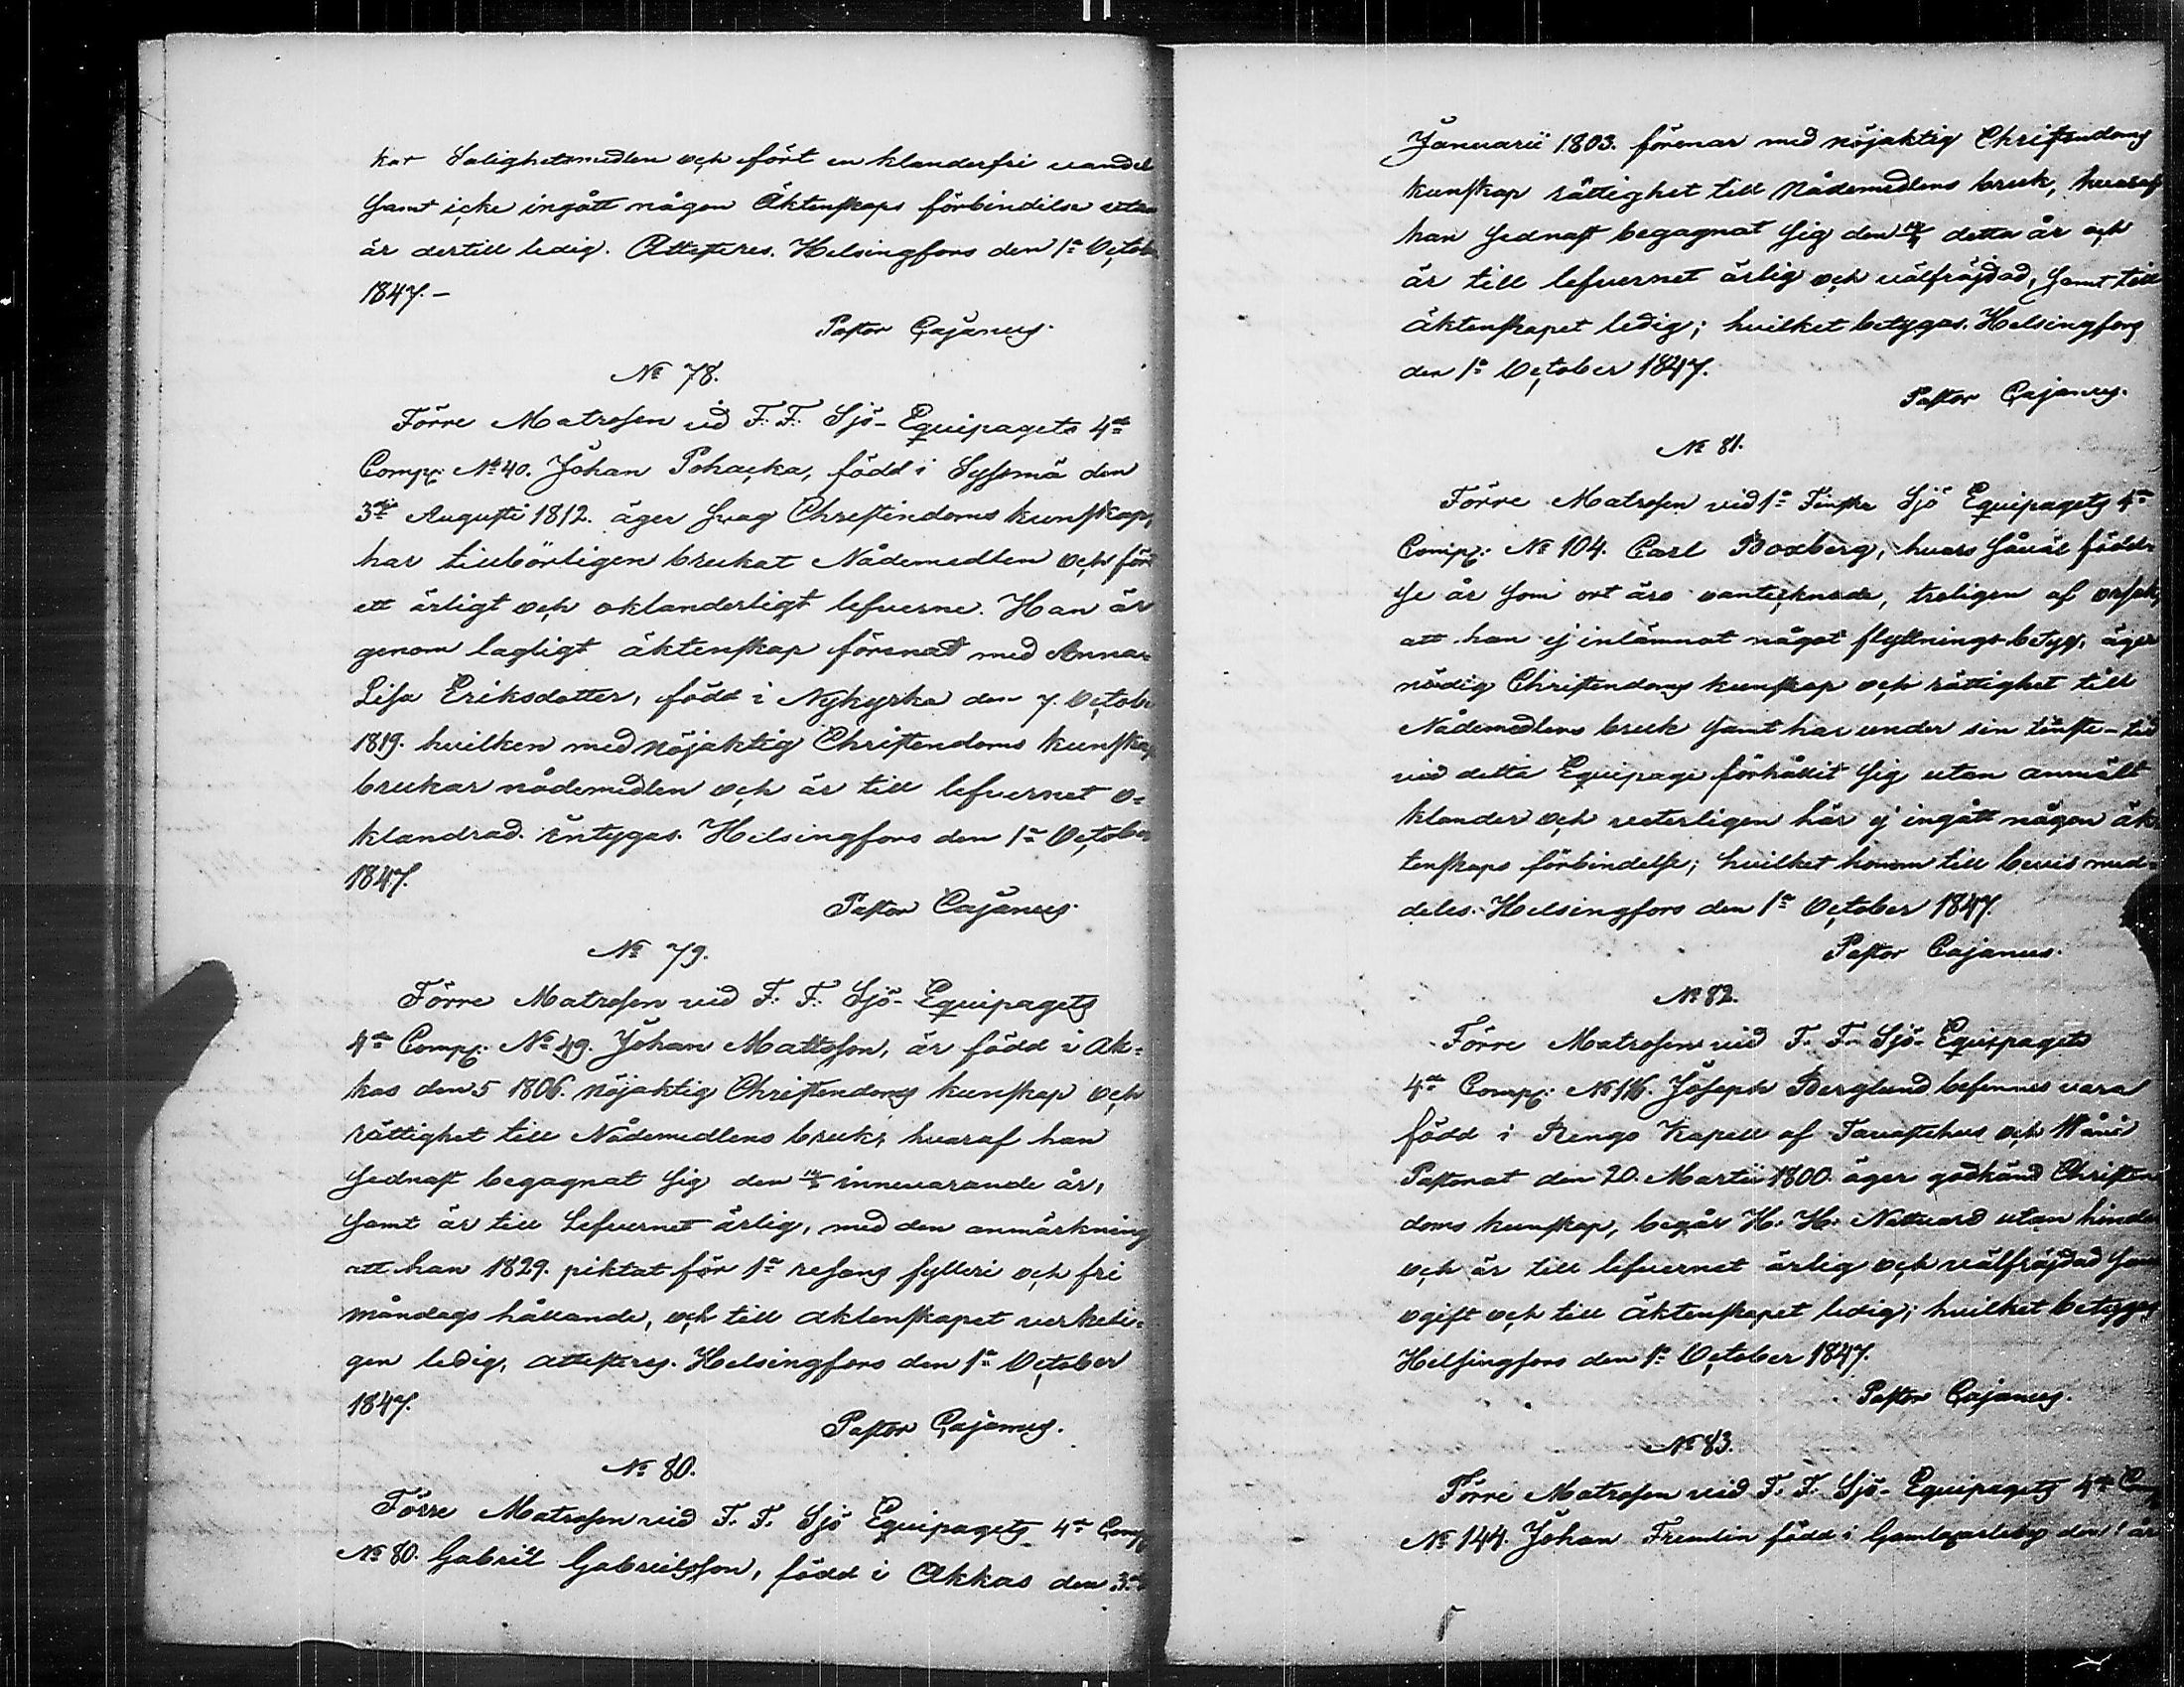 kar Salighetsmedlen och fört en klanderfri vandel
samt icke ingått någon Äktenskaps förbindelse utan
är dertill ledig. Attesteres. Helsingfors den 1a Octob
1847.-
Pastor Cajanus.
No 78.
Förre Matrosen vid F. F. Sjö-Equipagets 4de
Comp: No 40. Johan Pohacka, född i Syssmä den
3die Augusti 1812. äger svag Christendoms kunskap,
har tillbörligen brukat Nådemedlen och för
ett ärligt och oklanderligt lefverne. Han är
genom lagligt äktenskap förenad med Anna
Lisa Eriksdotter, född i Nykyrka den 7. Octob
1819. hvilken med nöjaktig Christendoms kunskap
brukar nådemedlen och är till lefvernet o-
klandrad. intygas. Helsingfors den 1a October
1847.
Pastor Cajanus.
No 79.
Förre Matrosen vid F. F. Sjö-Equipagets
4de Comp: No 49. Johan Mattsson, är född i Ak-
kas den 5 1806. nöjaktig Christendoms kunskap och
rättighet till Nådemedlens bruk, hvaraf han
sednast begagnat sig den innevarande år,
samt är till Lefvernet ärlig, med den anmärkning
att han 1829. pliktat för 1a resans fylleri och fri
måndags hållande, och till äktenskapet verkeli-
gen ledig, attesteres. Helsingfors den 1a October
1847.
Pastor Cajanus.
No 80.
Förre Matrosen vid F. F. Sjö Equipagets 4de Comp
No 80. Gabriel Gabrielsson, född i Akkas den 3
Januarii 1803. förenar med nöjaktig Christendoms
kunskap rättighet till Nådemedlens bruk, hvaraf
han sednast begagnat sig den detta år och
är till lefvernet ärlig och välfräjdad, samt till
äktenskapet ledig; hvilket betygas. Helsingfors
den 1a October 1847.
Pastor Cajanus.
No 81.
Förre Matrosen vid 1a Finska Sjö Equipagets 4de
Comp: No 104. Carl Boxberg, hvars såväl födel-
se år som ort äro oantecknade, troligen af orsak,
att han ej inlämnat något flyttnings-betyg, äger
nödig Christendoms kunskap och rättighet till
Nådemedlens bruk samt har under sin tjenste-tid
vid detta Equipage förhållit sig utan anmält
klander och veterligen här ej ingått någon äk-
tenskaps förbindelse; hvilket honom till bevis med-
deles. Helsingfors den 1a October 1847.
Pastor Cajanus.
No 82.
Förre Matrosen vid F. F. Sjö-Equipagets
4de Comp: No 116. Joseph Berglund befinnes vara
född i Rengo Kapell af Tavastehus och Wånå
Pastorat den 20. Martii 1800. äger godkänd Christen
doms kunskap, begår H. H. Nattvard utan hinder
och är till lefvernet ärlig och välfräjdad sam
ogift och till äktenskapet ledig; hvilket betygas
Helsingfors den 1a October 1847.
Pastor Cajanus.
No 83.
Förre Matrosen vid F. F. Sjö-Equipagets 4de
No 144. Johan Fremlin född i Gamlacarleby den 1 år